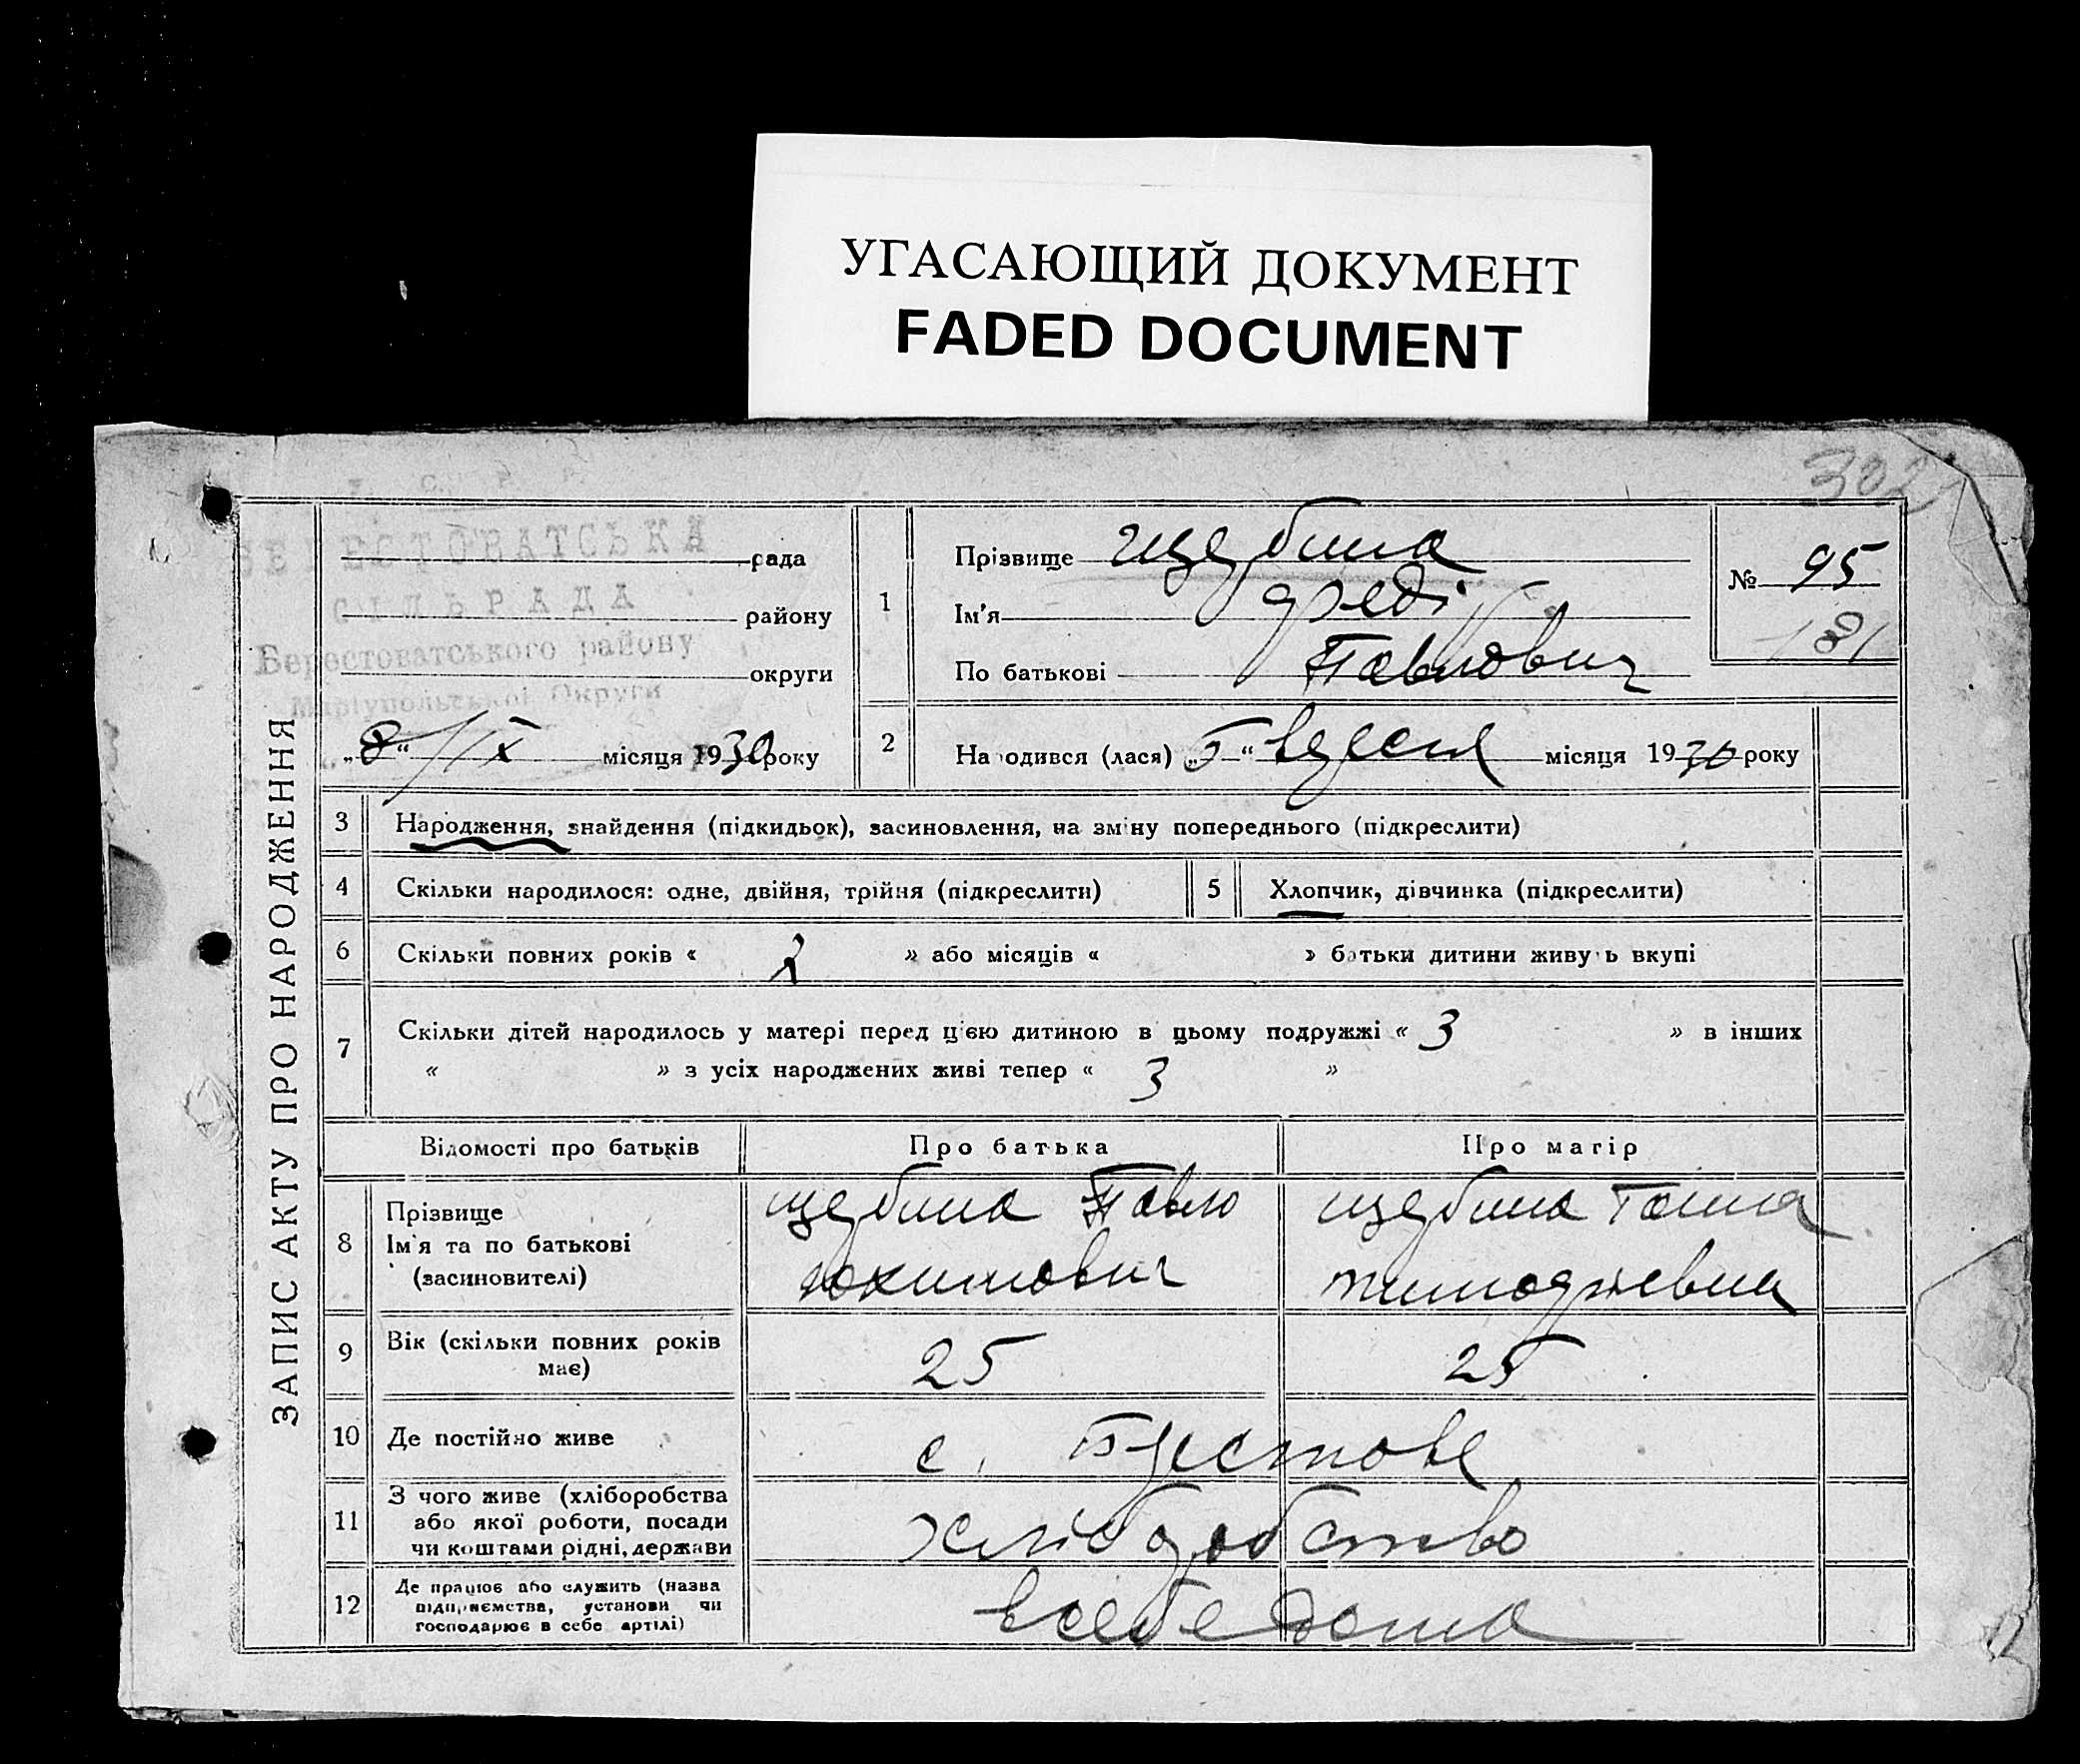 УГАСАЮЩИЙ ДОКУМЕНТ
FADED DOCUMENT
302
ЗАПИС АКТУ ПРО НАРОДЖЕННЯ
БЕРЕСТОВАТСЬКА
СІЛЬРАДА
Берестоватського району
Маріупольської Округи
рада
району
округи
„8“ /IX місяця 1930 року
1
Прізвище Щебина
Ім'я
По батькові Павлович
№ 95
181
2
Народився (лася) „5“ вересня місяця 1930 року
3 Народження, знайдення (підкидьок), засиновлення, на зміну попереднього (підкреслити)
4 Скільки народилося: одне, двійня, трійня (підкреслити)
5 Хлопчик, дівчинка (підкреслити)
6 Скільки повних років « » або місяців « » батьки дитини живуть вкупі
7 Скільки дітей народилось у матері перед цією дитиною в цьому подружжі « 3 » в інших
« » з усіх народжених живі тепер « 3 »
Відомості про батьків
Про батька
Про матір
8
Прізвище
Ім'я та по батькові
(засиновителі)
Щебина Павло
Юхимович
Щебина Ганна
Тимофіевна
9 Вік (скільки повних років
має)
25
25
10 Де постійно живе
с. Берестове
11
З чого живе (хліборобства
або якої роботи, посади
чи коштами рідні, держави
хліборобство
12
Де працює або служить (назва
підприємства, установи чи
господарює в себе артілі)
в себе дома